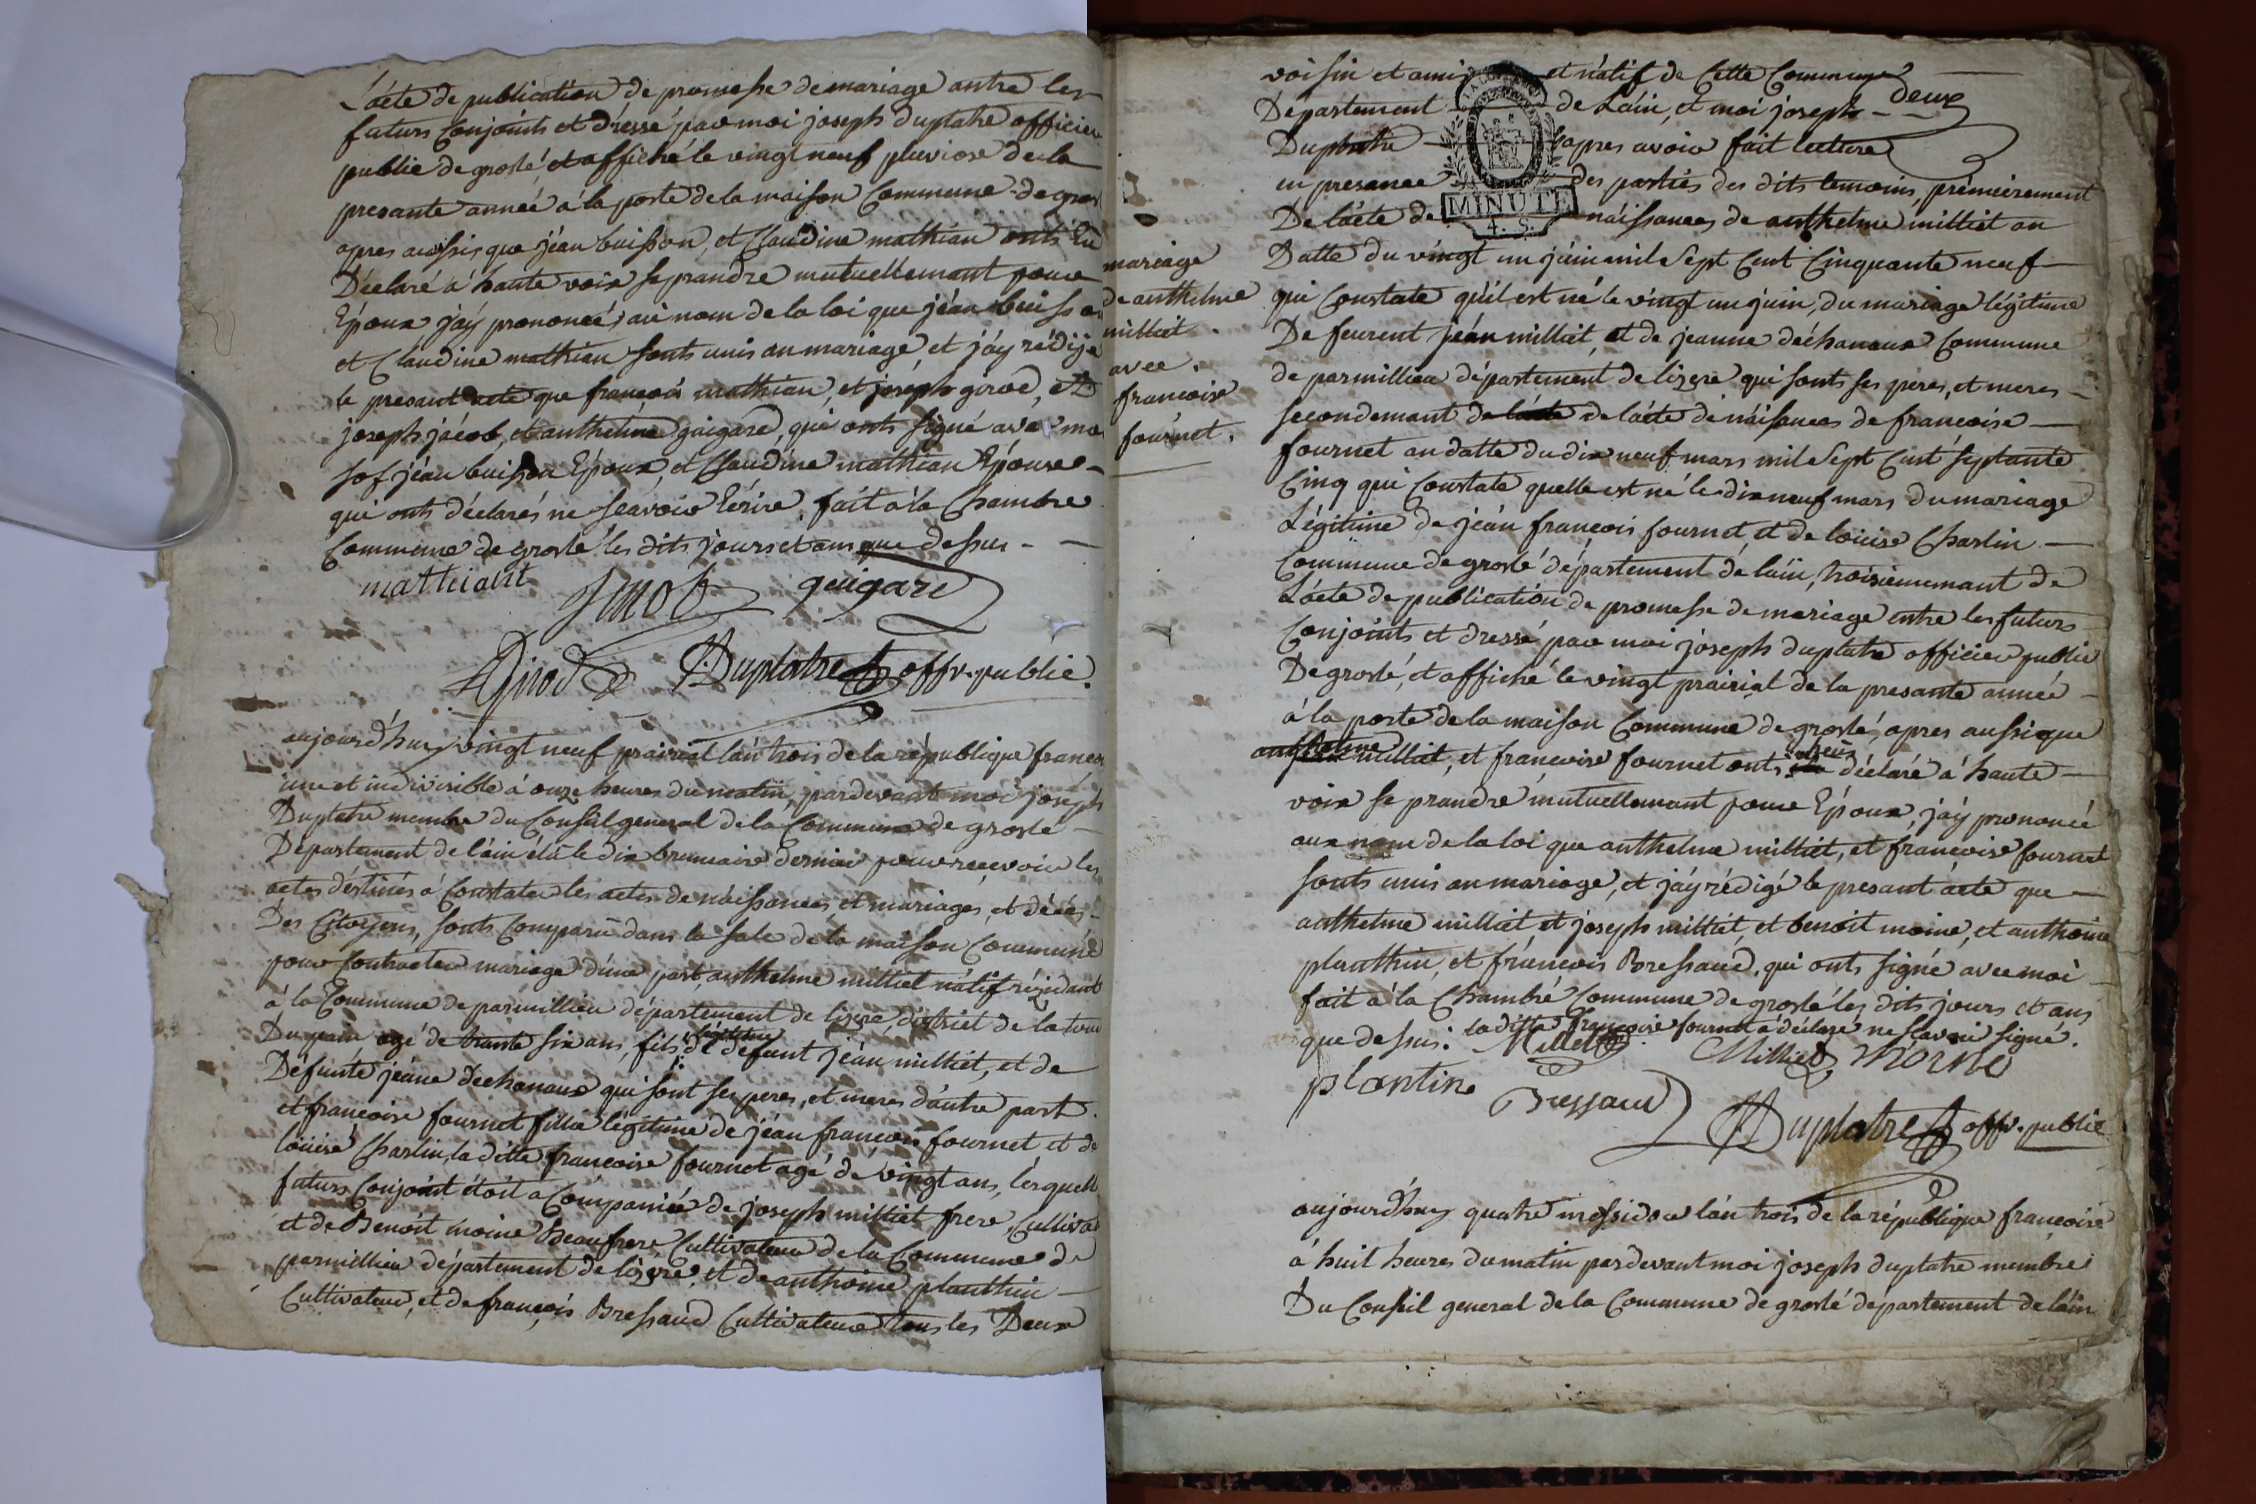 L'acte de publication de promesse de mariage antre les
futurs Conjoints et dressé par moi joseph duplatre officier
public de groslé, et affiché le vingt neuf pluviose de la
presante année à la porte de la maison Commune de gros
apres aussis que jéan buisson, et Claudine mathian onts Eu
Déclaré à haute voix se prandre mutuellemant pour
Epoux j'áÿ prononcéé au nom de la loi que jéan buisson
et Claudine mathian sonts unis an mariage et j'áÿ rédijé
le presant acte que françois mathian, et joséph girod, et
joseph jácob, et anthelme guigard, qui onts signé avec moi
sof jéan buisson Epoux, et Claudine mathian Epouse
qui onts déclarés ne sçavoir Ecrire, fait à la Chambre
Commune de groslé les dits jours et ans que dessus
mathiant
guigard
Girod Duplatre offr. public.
aujourd'huy vingt neuf prairial l'án trois de la république françoi
une et indivisible à onze heures du matin, pardevant moi joséph
Duplatre membre du Consul general de la Commune de groslé
Département de l'áin élu le dix brumaire dernier pour recevoir les
actes déstinés à Constater les actes de náissances, et mariages, et décés
Des Citoyens, sonts Comparu dans la sale de la maison Commune
pour Contracter mariage d'une part, anthelme milliet nátif résidant
à la Commune de parmillieu département de lizere, district de la tour
Dupain agé de trante six ans, fils légitime de défunt jéan milliet, et de
Défunte jeáne dechanaux qui sont ses peres, et meres d'autre part
et françoise fournet fillie légitime de jéan françois fournet et de
loüise Charlin, la ditte françoise fournet agé de vingt ans, lesquell
futurs Conjoint étoit a Compagniée de joseph milliet frere, Cultivat
et de Benoit moine Beaufrere Cultivateur de la Commune de
parmillieu département de lizere, et de anthoine planthin
Cultivateur, et de françois Bressaud Cultivateur tous les Deux
mariage
de anthelme
milliet
avec
francoise
fournet.
voisin et ami et nátif de Cette Commune
deux
Département de L'áin, et moi joseph
Duplatre apres avoir fait lecture
en presance des partiés des dits temoins, prémiérement
De l'ácte de náissances de anthelme milliet an
MINUTE
4. S.
Datte du vingt un juin mil Sept Cent Cinquante neuf
qui Constate qu'il est né le vingt un juin, du mariage légitime
De feurent jéan milliet, et de jeanne déchanaux Commune
de parmillieu département de lizere qui sonts ses peres, et meres
secondemant de l'ácte de l'ácte de náissances de françoise
fournet an datte du dix neuf mars mil Sept Cent septante
Cinq qui Constate quelle est né le dix neuf mars du mariage
Légitime de jéan françois fournet, et de loüise Charlin
Commune de groslé département de l'áin, troisiememant de
L'ácte de publication de promesse de mariage entre les futurs
Conjoints et dressé par moi joseph duplatre officier public
De groslé, et affiché le vingt prairial de la presante année
à la porte de la maison Commune de groslé, apres aussi que
anthelme
milliet, et françoise fournet onts déclaré à haute
voix se prandre mutuellemant pour Epoux, j'áÿ prononcé
aux nom de la loi que anthelme milliet, et françoise fournet
sonts unis an mariage, et j'áÿ rédigé le presant ácte que
anthelme milliet et joseph milliet et benoit moine, et anthoine
planthin, et françois Bressaud, qui onts signé avec moi
fait à la Chambre Commune de groslé les dits jours et ans
que dessus. la ditte françoise fournet a déclaré ne sçavoir signé.
Milliet Milliet Moine
plantin Bressaud
Duplatre offr. public
aujourd'huy quatre messidor l'án trois de la république françoise
à huit heures du matin par devant moi joseph duplatre membre
Du Conseil general de la Commune de groslé département de l'áin